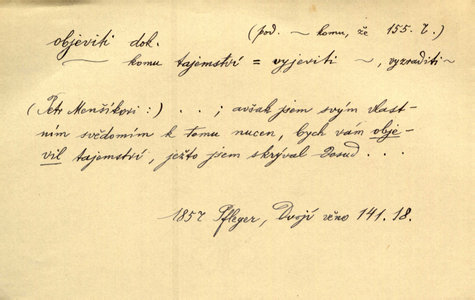 objeviti dok. (pod. ~ komu, že 155. ř.)
~ komu tajemství = vyjeviti ~, vyzraditi ~
(Petr Menšíkovi:) . . ; avšak jsem svým vlast-
ním svědomím k tomu nucen, bych vám obje-
vil tajemství, ježto jsem skrýval dosud . . .
1857 Pfleger, Dvojí věno 141. 18.